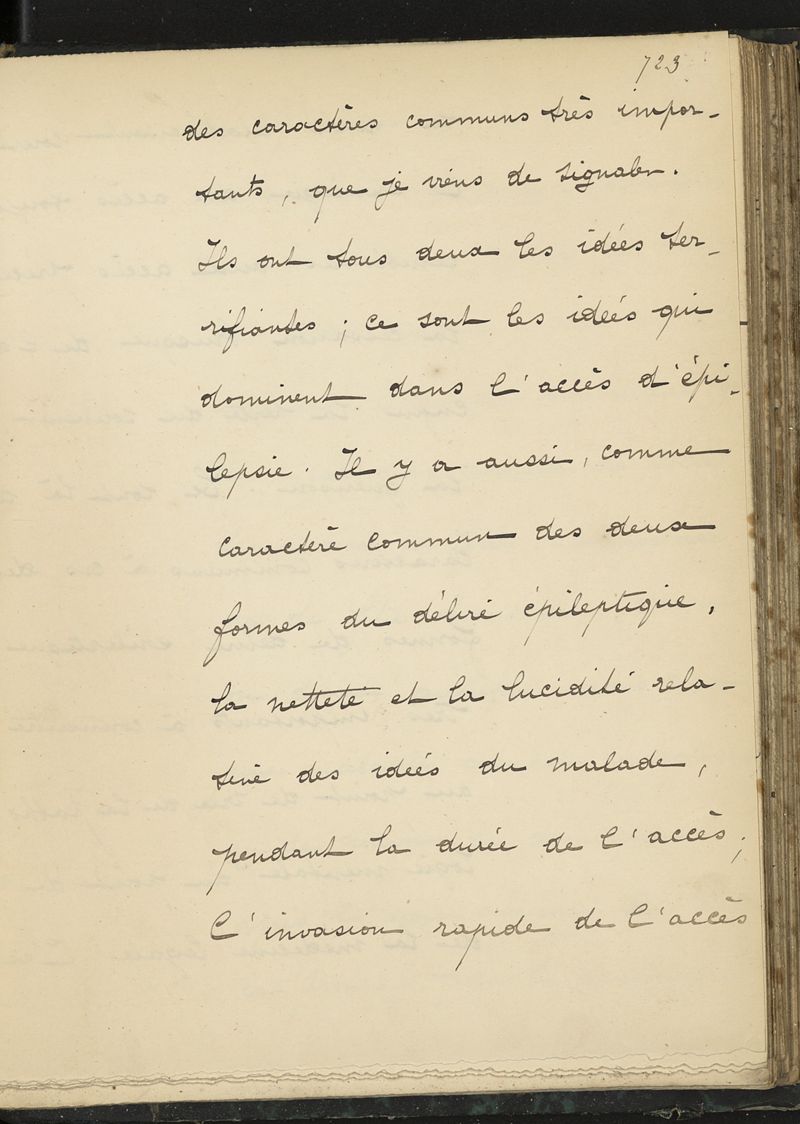 723
des caractères communs très impor-
tants, que je viens de signaler.
Ils ont tous deux les idées ter-
rifiantes ; ce sont les idées qui
dominent dans l'accès d'épi-
lepsie. Il y a aussi, comme
caractère commun des deux
formes du délire épileptique,
la netteté et la lucidité rela-
tive des idées du malade,
pendant la durée de l'accès ;
l'invasion rapide de l'accès